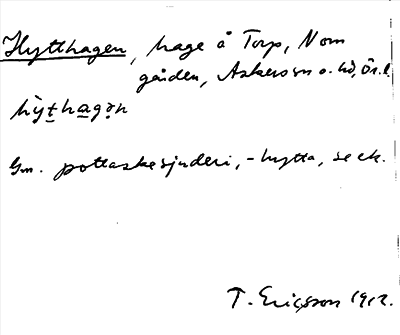 Hytthagen, hage å Torp, Nom
gården, Askersun o. hd, Ör. l.
hỳt̲ha̲gǝn
Gm. pottaskesjuderi, -hytta, se ek.
T. Ericsson 1912.